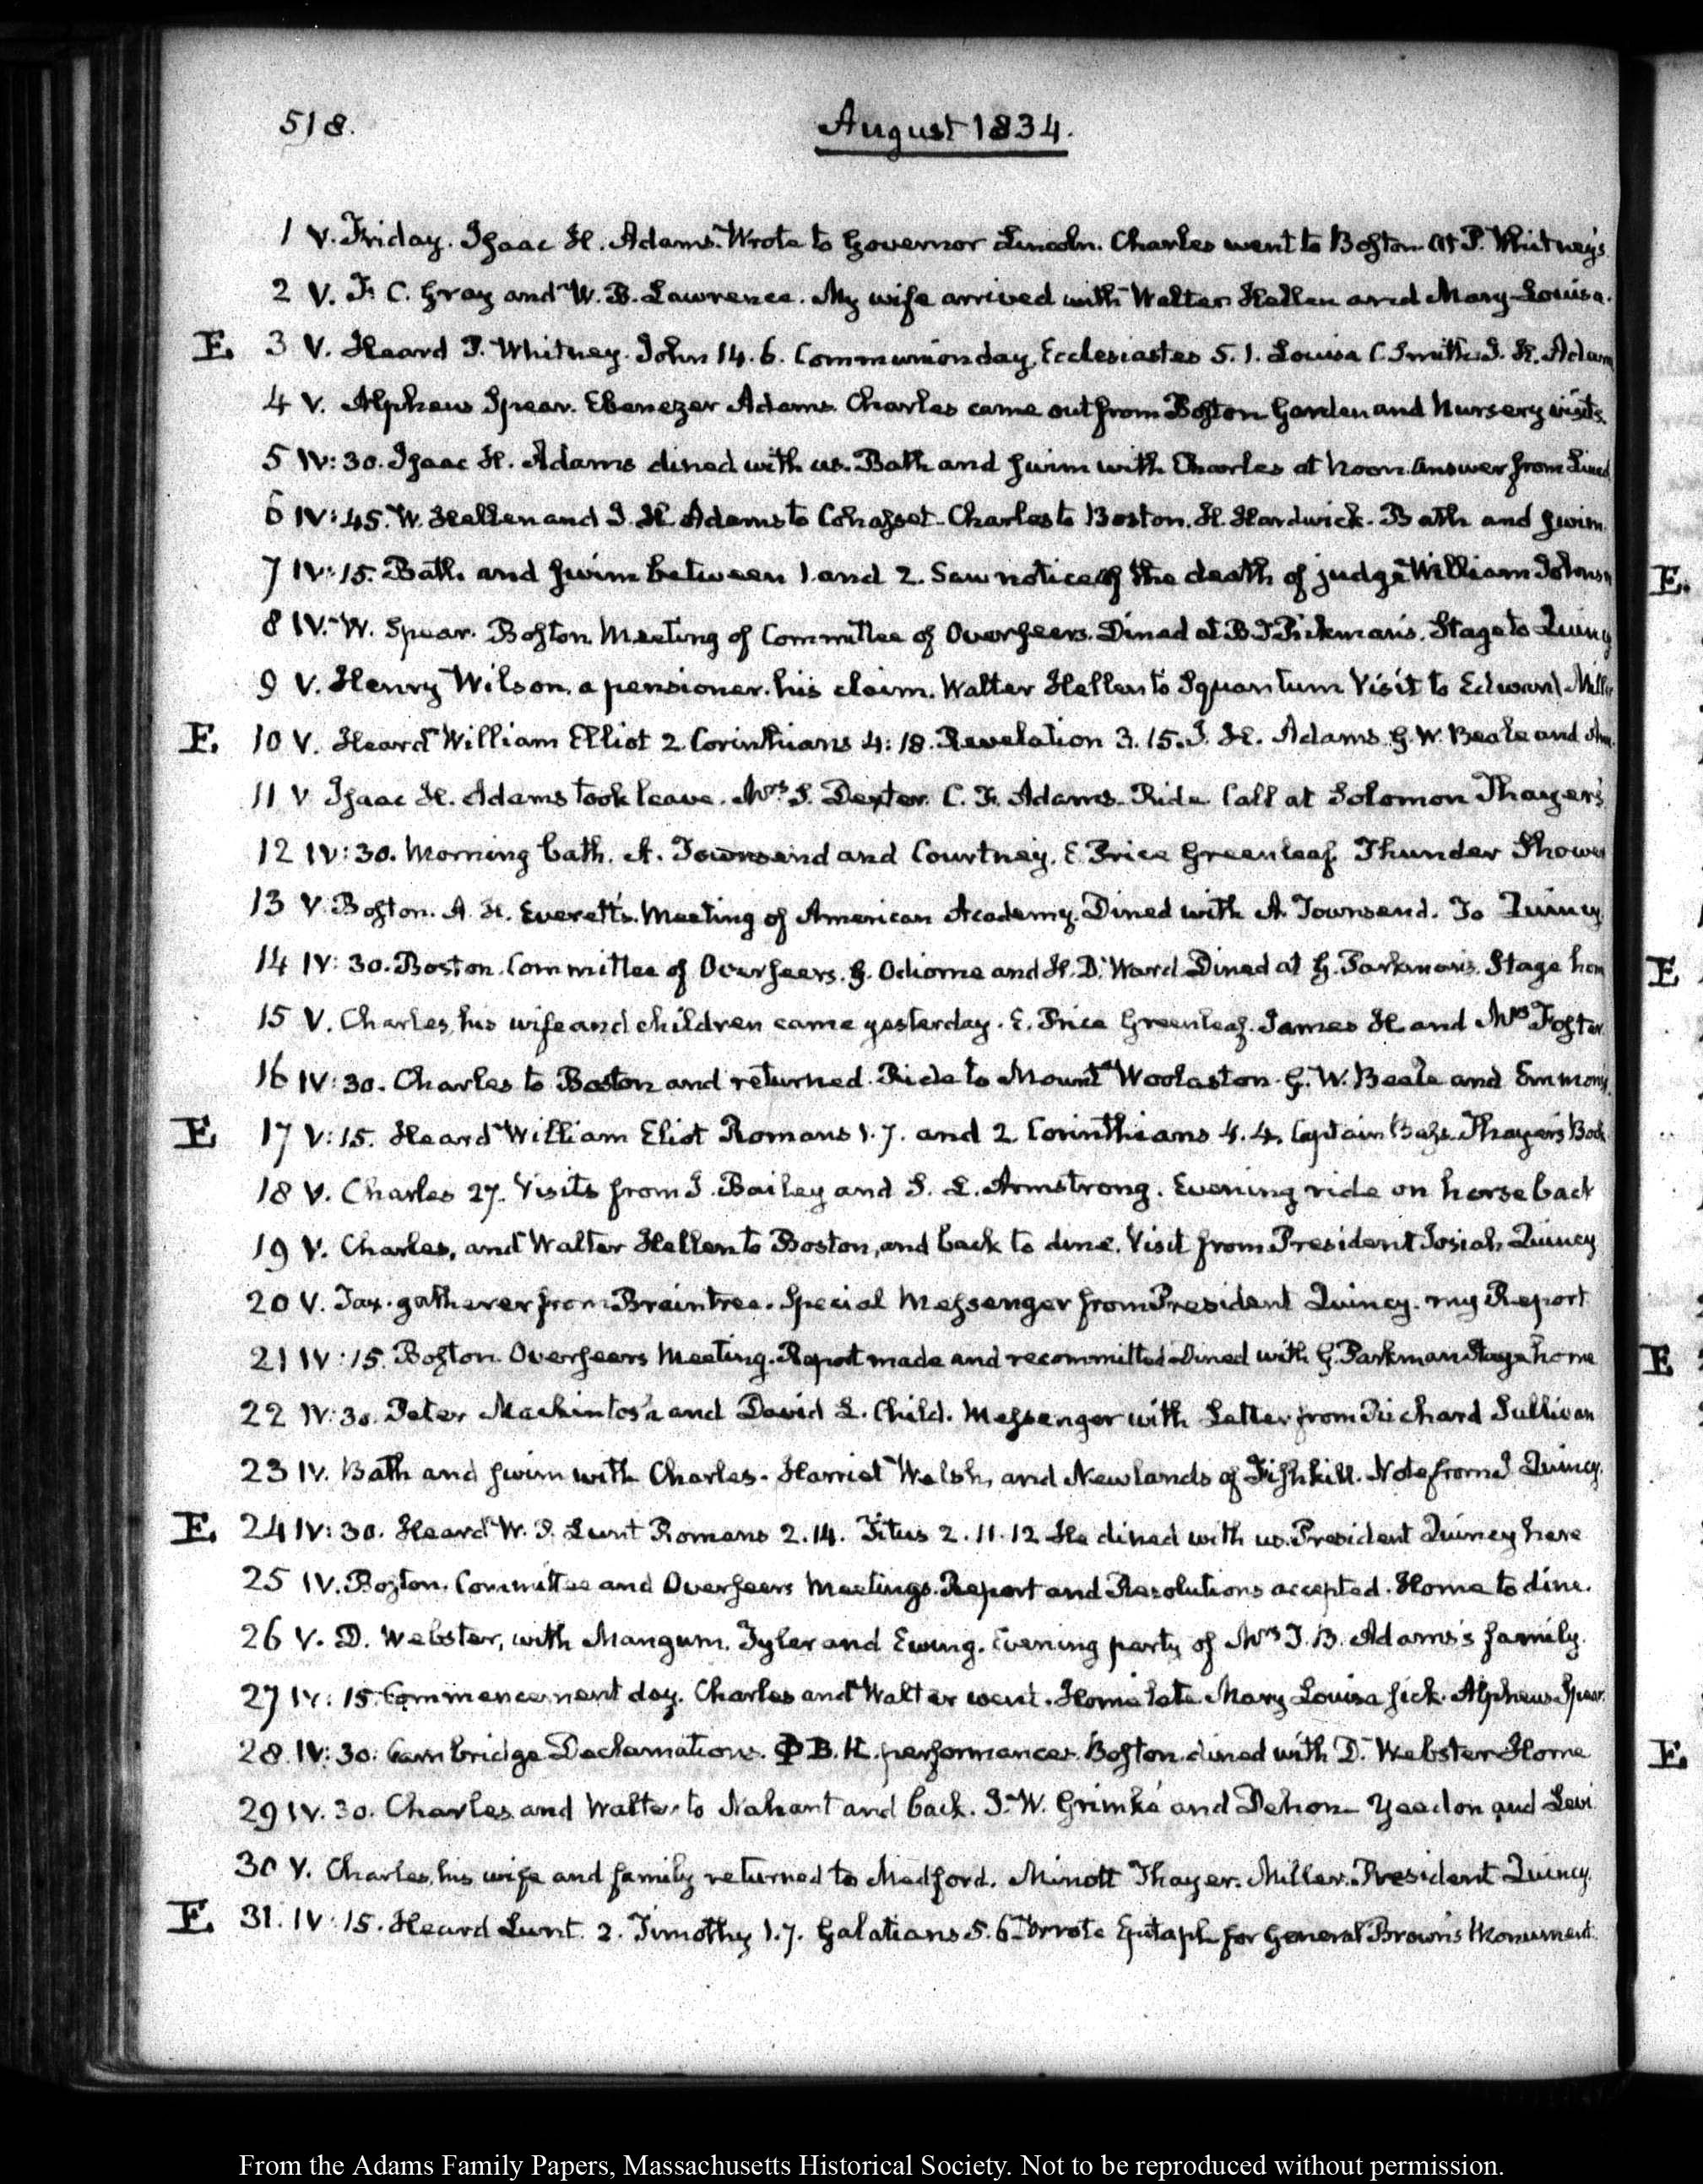 518.
August 1834.
1 V. Friday. Isaac H. Adams. Wrote to Governor Lincoln. Charles went to Boston. At P. Whitney's
2 V. F. C. Gray and W. B. Lawrence. My wife arrived with Walter Hellen and Mary-Louisa.
E. 3 V. Heard P. Whitney. John 14. 6. Communion day, Ecclesiastes 5. 1. Louisa C. Smith. I. H. Adam
4 V. Alpheus Spear. Ebenezer Adams. Charles came out from Boston Garden and Nursery visits.
5 IV: 30. Isaac H. Adams dined with us. Bath and swim with Charles at Noon. Answer from Linco
6 IV: 45. W. Hellen and I. H. Adams to Cohasset. Charles to Boston. H. Hardwick. Bath and swim.
7 IV: 15. Bath and swim between 1. and 2. Saw notice of the death of judge William Johnson
8 IV. W. Spear. Boston Meeting of Committee of Overseers. Dined at B. T. Pickman's. Stage to Quincy
9 V. Henry Wilson, a pensioner. his claim. Walter Hellen to Squantum Visit to Edward Miller
E. 10 V. Heard William Elliot 2. Corinthians 4: 18. Revelation 3. 15. I. H. Adams. G. W. Beale and
11 V Isaac H. Adams took leave. Mrs S. Dexter. C. F. Adams. Ride. Call at Solomon Thayer's
12 IV: 30. Morning bath. A. Townsend and Courtney. E. Price Greenleaf. Thunder Shower
13 V. Boston. A. H. Everett's. Meeting of American Academy. Dined with A. Townsend. To Quincy
14 IV: 30. Boston. Committee of Overseers. G. Odiorne and H. D. Ward. Dined at G. Parkman's. Stage hom
15 V. Charles, his wife and children came yesterday. E. Price Greenleaf. James H. and Mrs Foster.
16 IV: 30. Charles to Boston and returned. Ride to Mount Woolaston. G. W. Beale and Emmons.
E. 17 V: 15. Heard William Eliot Romans 1. 7. and 2. Corinthians 4. 4. Captain Bass. Thayer's Book
18 V. Charles 27. Visits from J. Bailey and S. L. Armstrong. Evening ride on horseback
19 V. Charles, and Walter Hellen to Boston, and back to dine. Visit from President Josiah Quincy
20 V. Tax-gatherer from Braintree. Special Messenger from President Quincy. my Report
21 IV: 15. Boston. Overseers Meeting. Report made and recommitted. Dined with G. Parkman. Stage home
22 IV: 30. Peter Mackintosh and David L. Child. Messenger with Letter from Richard Sullivan
23 IV. Bath and swim with Charles. Harriet Welsh, and Newlands of Fishkill. Note from J. Quincy.
E. 24 IV: 30. Heard W. P. Lunt Romans 2. 14. Titus 2. 11. 12 He dined with us. President Quincy here
25 IV. Boston. Committee and Overseers Meetings. Report and Resolutions accepted. Home to dine.
26 V. D. Webster, with Mangum, Tyler and Ewing. Evening party of Mrs T. B. Adams's family.
27 IV: 15. Commencement day. Charles and Walter went. Home late. Mary Louisa sick. Alpheus Spear.
28. IV: 30. Cambridge Declamations. Φ B. K. performances. Boston. dined with D. Webster Home
29 IV. 30. Charles and Walter to Nahant and back. J. W. Grimké and Dehon. Yeadon and Levi
30 V. Charles, his wife and family returned to Medford. Minott Thayer. Miller. President Quincy.
E. 31. IV: 15. Heard Lunt. 2. Timothy 1. 7. Galatians 5. 6. Wrote Epitaph for General Brown's Monument.
E.
E
E
E.
From the Adams Family Papers, Massachusetts Historical Society. Not to be reproduced without permission.